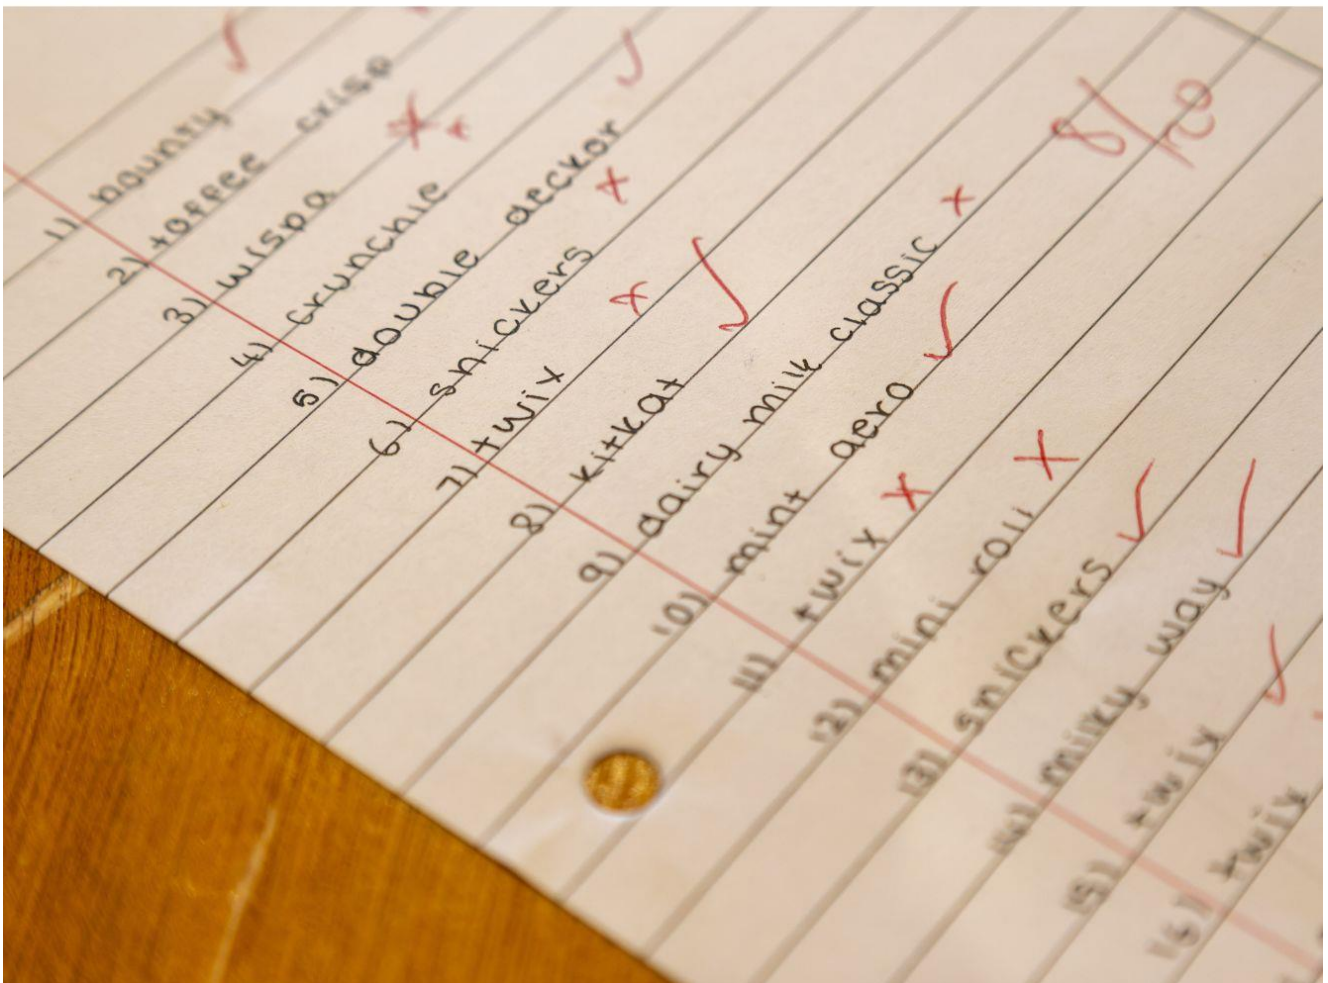 1) bounty
2) toffee crisp
3) wispa
4) crunchie
5) double deckor
6) snickers
7) twix
8) kitkat
9) dairy milk classic
10) mint aero
11) twix
12) mini roll
13) snickers
14) milky way
15) twix
16) twix
8/20